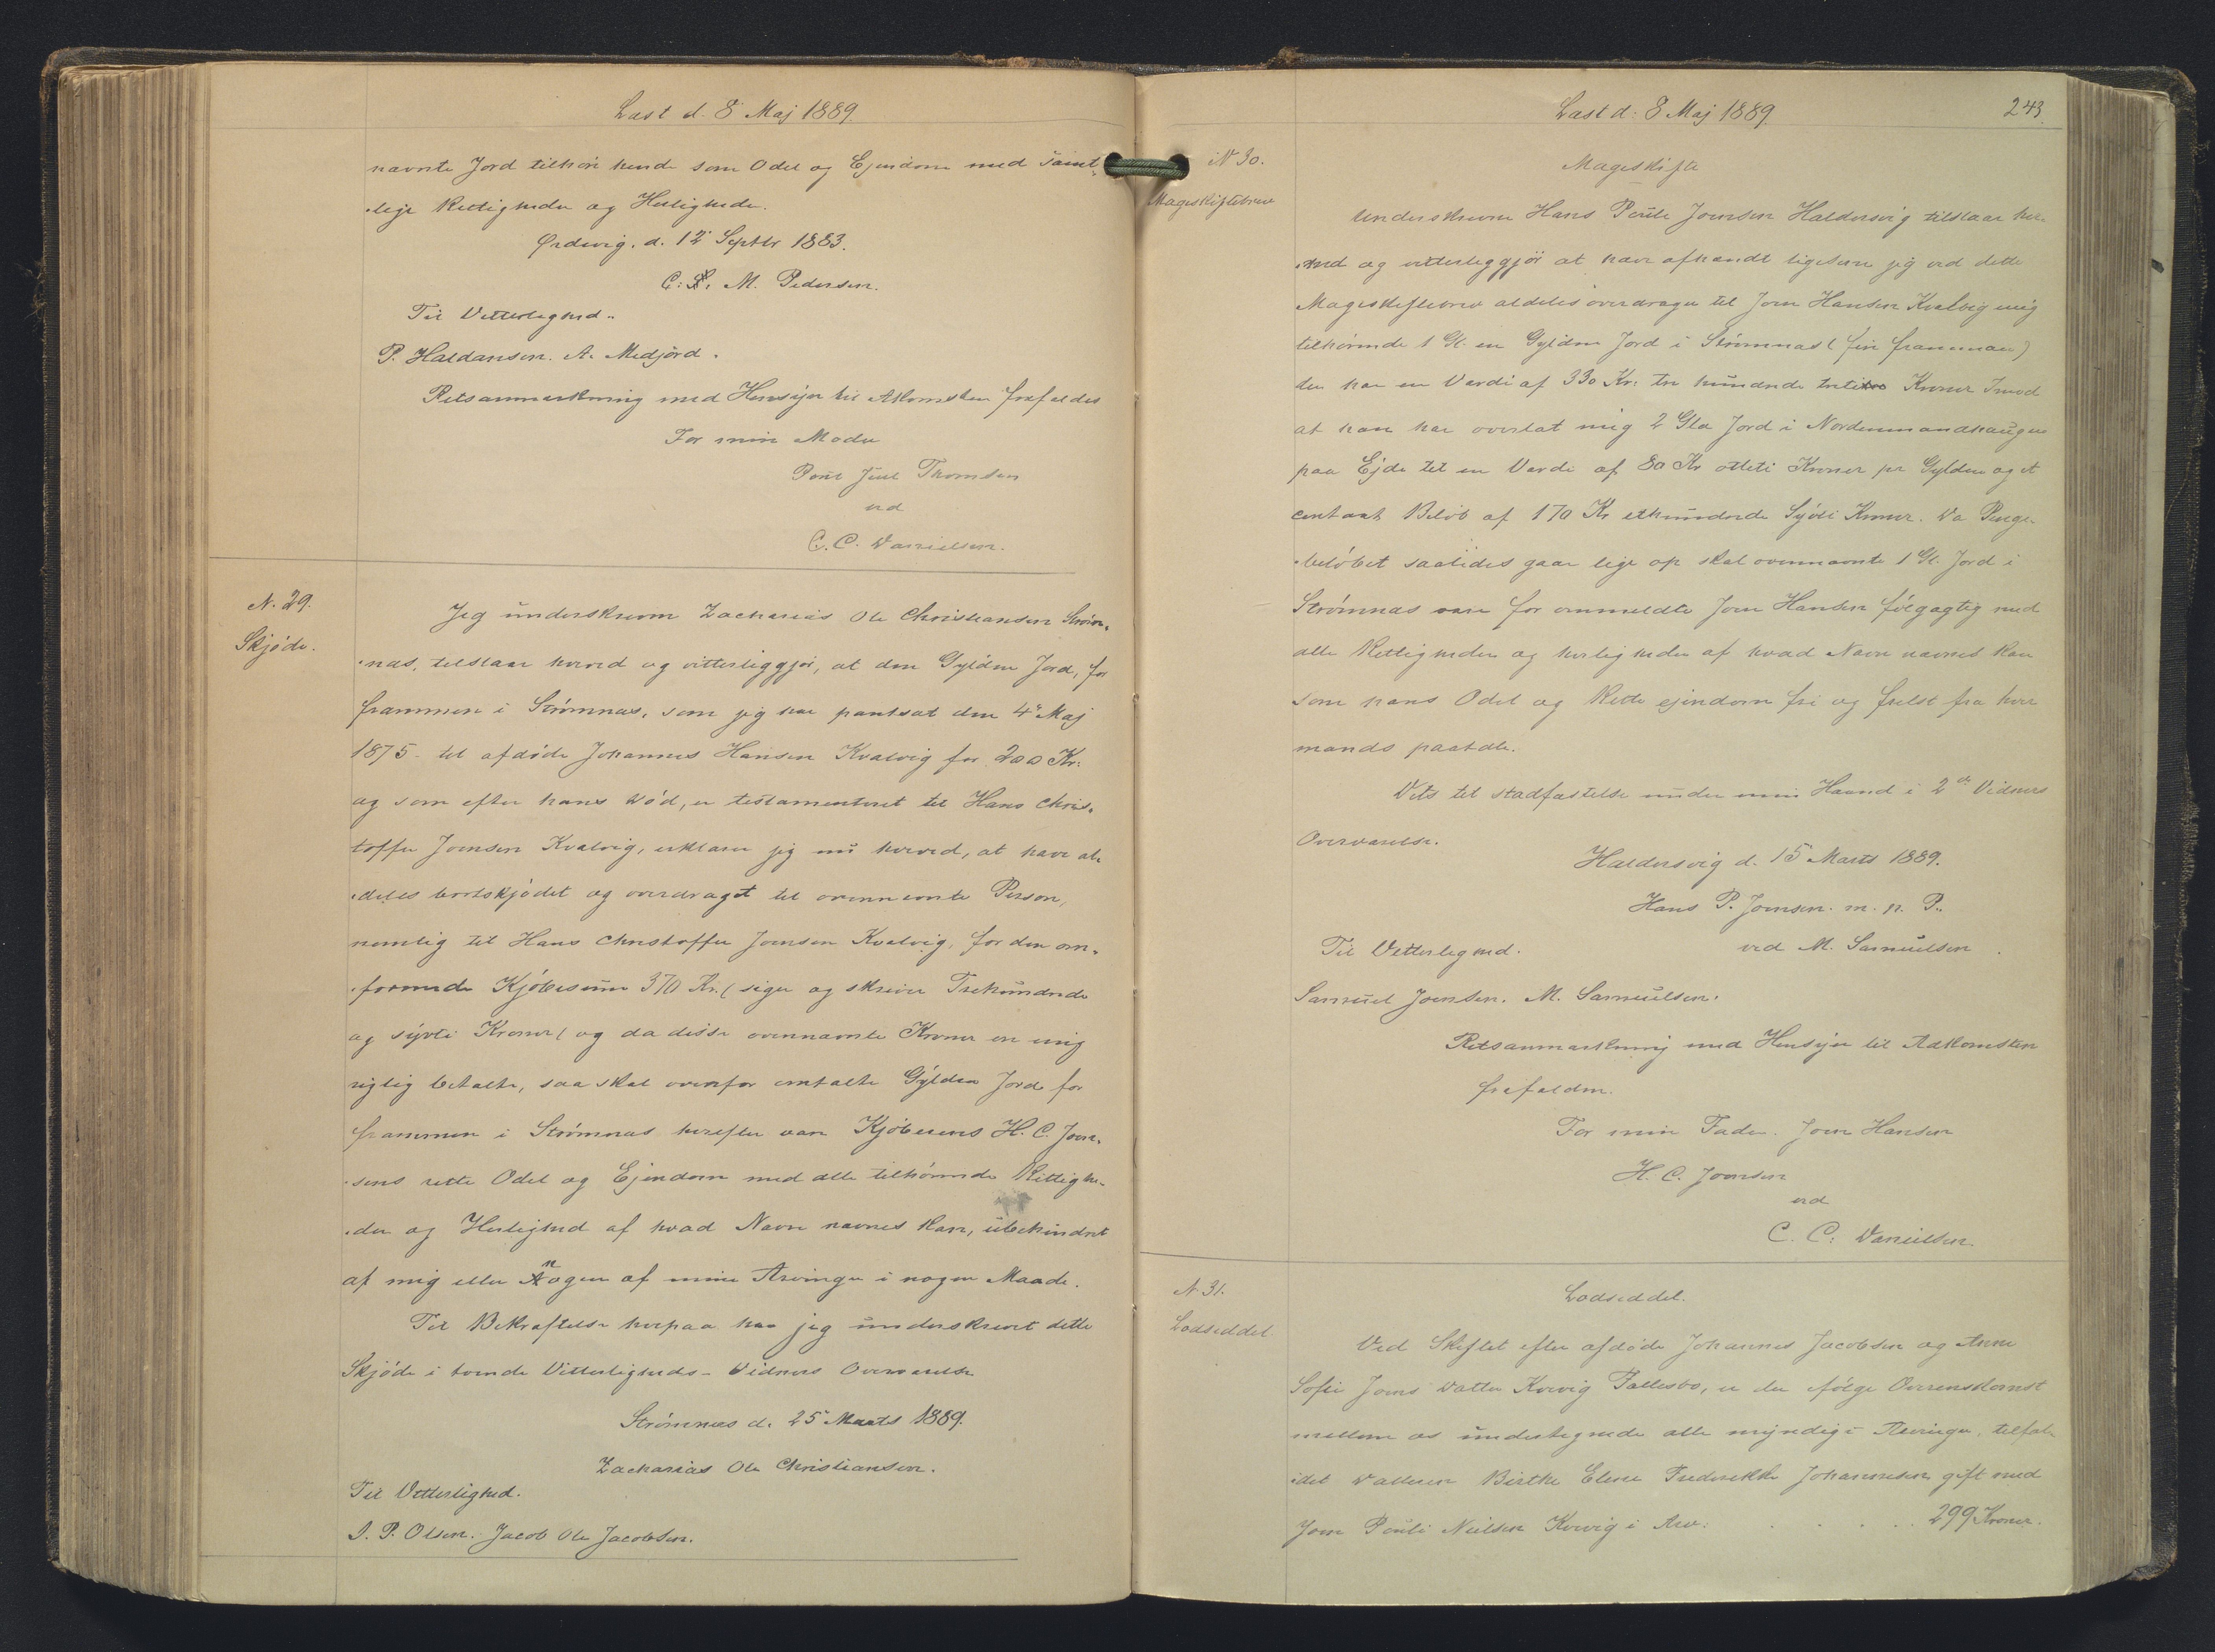 Læst d. 8 Maj 1889
nævnte Jord tilhöre hende som Odel og Ejendom med samt„
„lige Rettigheder og Herligheder.
Ørdevig. d. 12 Septbr 1883.
C: P. M. Pedersen.
Til Vitterlighed.
P. Haldansen. A. Midjord.
Retsanmærkning med Hensyn til Adkomsten frafaldes
For min Moder
Poul Juul Thomsen
ved
C. C. Danielsen.
N. 29.
Skjóde.
Jeg underskrevne Zacharias Ole Christiansen Ström„
„næs, tilstaar herved og vitterliggjör, at den Gylden Jord, for
frammen i Strómnæs, som jeg har pantsat den 4 Maj
1875 til afdöde Johannes Hansen Kvalvig for 200 Kr:
og som efter hans Död, er testamenteret til Hans Chris„
toffer Joensen Kvalvig, erklærer jeg nu herved, at have al„
„deles bortskjódet og overdraget til ovennævnte Person,
nemlig til Hans Christoffer Joensen Kvalvig, for den om„
„formede Kjóbesum 370 Kr. (siger og skriver Trehundrede
og syvti Kroner) og da disse ovennævnte Kroner er mig
rigtig betalte, saa skal ovenfor omtalte Gylden Jord for
frammen i Strómnæs herefter være Kjóberens H. C. Joen„
„sens rette Odel og Ejendom med alle tilhórende Rettighe„
„der og Herlighed af hvad Navn nævnes kan, ubehindret
af mig eller nogen af mine Arvinger i nogen Maade.
Til Bekræftelse herpaa har jeg underskrevet dette
Skjóde i tvende Vitterligheds-Vidners Overværelse
Strómnæs d. 25 Marts 1889.
Zacharias Ole Christiansen.
Til Vitterlighed.
J. P. Olsen. Jacob Ole Jacobsen.
Læst d: 8 Maj 1889
243
N 30.
Mageskiftebrev
Mageskifte
Underskrevne Hans Poule Joensen Haldersvig tilstaar her„
„med og vitterliggjör at have afhændt ligesom jeg ved dette
Mageskiftebrev aldeles overdrager til Joen Hansen Kvalvig mig
tilhörende 1 Gl. en Gylden Jord i Strömnæs (firi framman)
den har en Værdi af 330 Kr: tre hundrede treti Kroner Imod
at han har overladt mig 2 Gla Jord i Nordenmandhaugen
paa Ejde til en Værdi af 80 Kr otteti Kroner pr Gylden og et
contant Belób af 170 Kr ethundrede Syvti Kroner. Da Penge„
„belóbet saaledes gaar lige op skal ovennævnte 1 Gl. Jord i
Strómnæs være for ommeldte Joen Hansen fölgagtig med
alle Rettigheder og herligheder af hvad Navn nævnes kan
som hans Odel og Rette ejendom fri og frelst fra hver
mands paatale.
Dets til stadfæstelse under min Haand i 2de Vidners
Overværelse.
Haldersvig d. 15 Marts 1889.
Hans P. Joensen. m. p. P.
Til Vitterlighed.
ved M. Samuelsen
Samuel Joensen. M. Samuelsen.
Retsanmærkning med Hensyn til Adkomsten
frafalden.
For min Fader. Joen Hansen
H. C. Joensen
ved
C. C. Danielsen.
N 31.
Lodseddel
Lodseddel.
Ved Skiftet efter afdöde Johannes Jacobsen og Anne
Sofie Joens Datter Kvivig Fallesbo, er der fölge Overenskomst
mellem os undertegnede alle myndige Arvinger, tilfal„
„det Datteren Birthe Elene Frederikke Johannesen, gift med
Joen Pouli Nielsen Kvivig i Arv. . . . . . 299 Kroner.